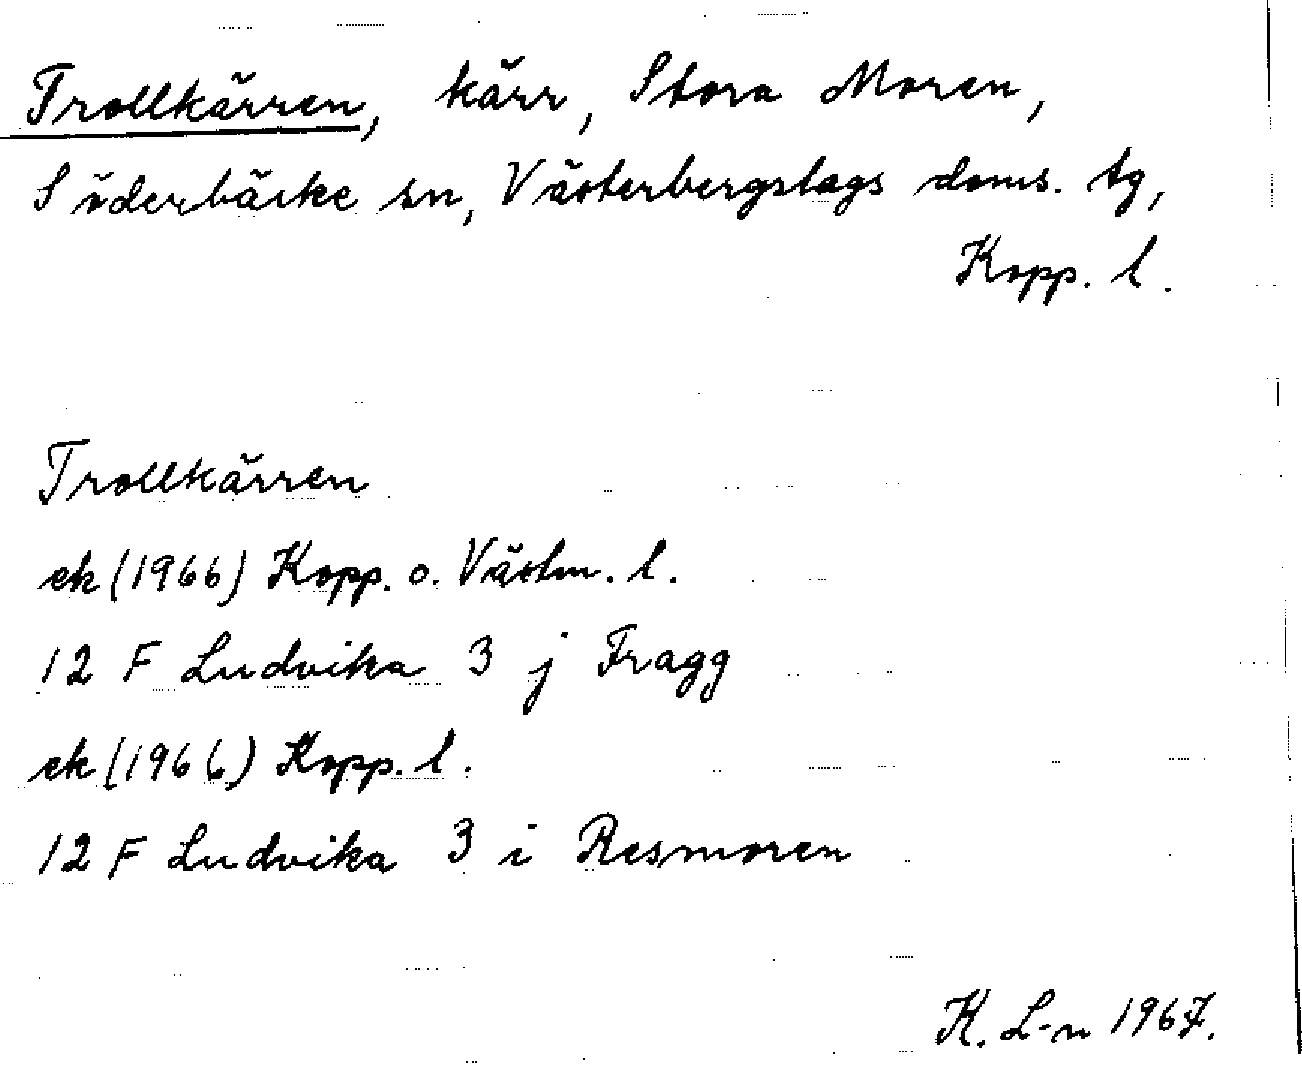 Trollkärren, kärr, Stora Moren,
Söderbärke sn, Västerbergslags doms. tg,
Kopp. l.
Trollkärren
ek (1966) Kopp. o. Västm. l.
12 F Ludvika 3 j Fragg
ek (1966) Kopp. l.
12 F Ludvika 3 i Resmoren
K. L-n 1967.